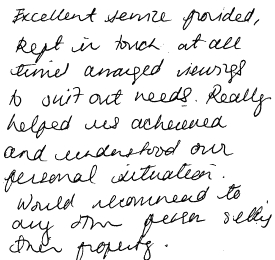 Excellent service provided,
kept in touch at all
times arranged viewings
to suit out needs. Really
helped us achieved
and understood our
personal situation.
Would recommend to
any other person selling
their property.